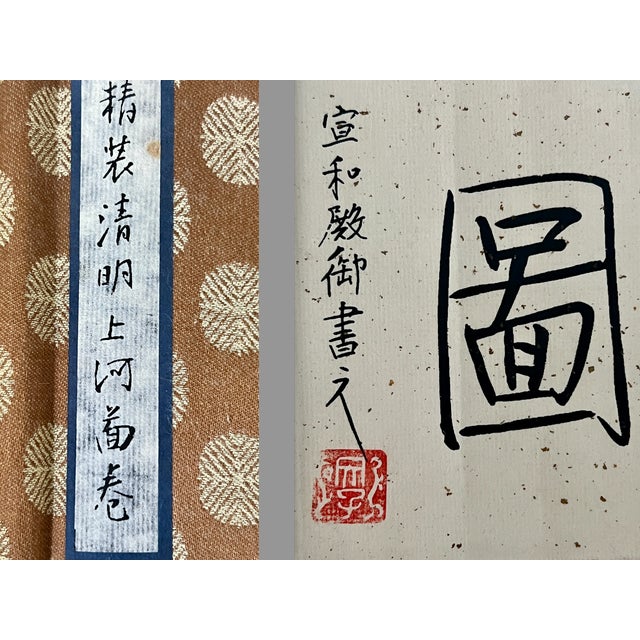 精装清明上河圖卷
圖
宣和殿御書